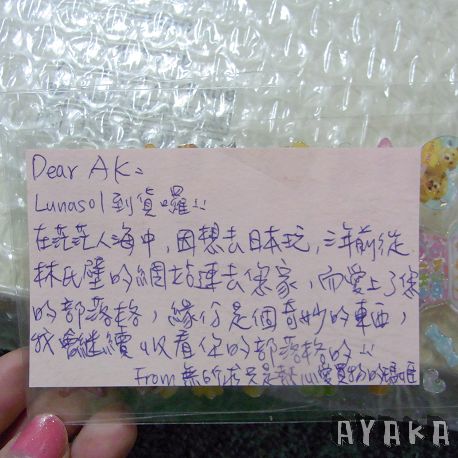 Dear AK:
Lunasol到貨囉!!
在茫茫人海中,因想去日本玩,三年前從
林氏璧的網站連去您家,而愛上了您
的部落格,緣份是個奇妙的東西,
我會繼續收看你的部落格的!!
From 無所求只是熱心愛買物的媽咪
AYAKA